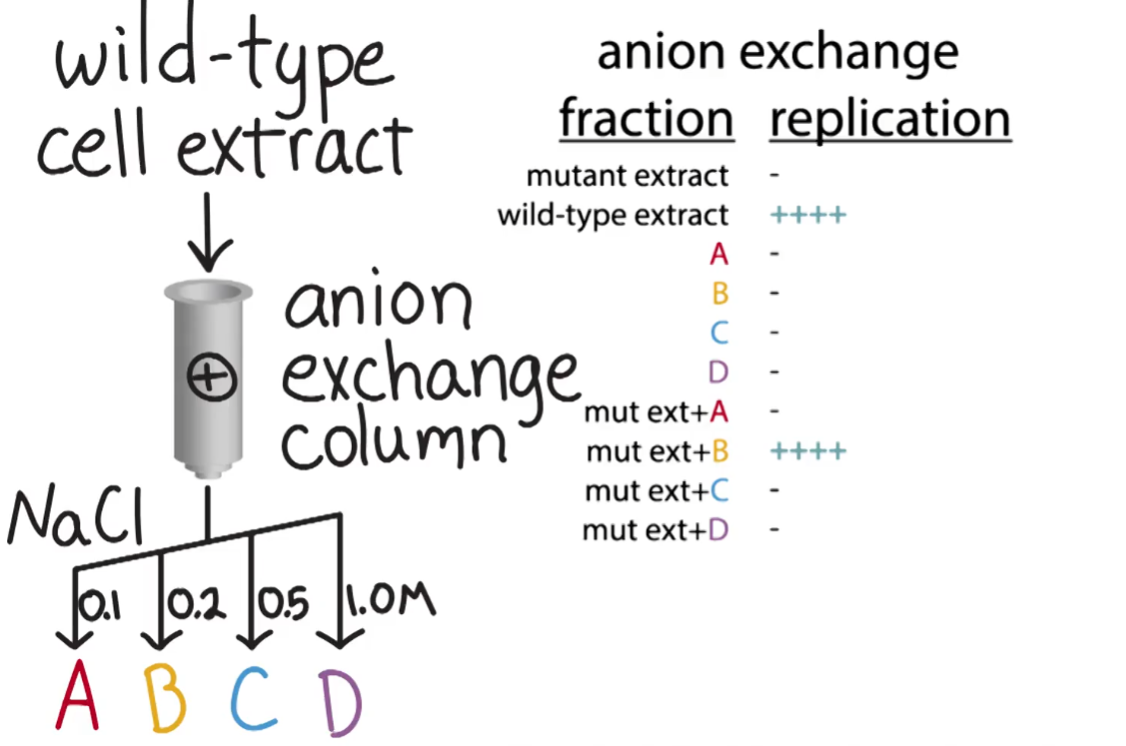 wild-type
cell extract
anion
exchange
column
+
NaCl
0.1 0.2 0.5 1.0M
A B C D
anion exchange
fraction replication
mutant extract -
wild-type extract ++++
A -
B -
C -
D -
mut ext+A -
mut ext+B ++++
mut ext+C -
mut ext+D -